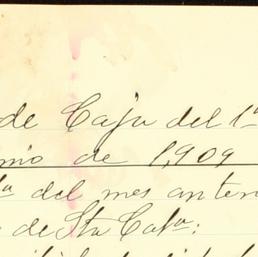 de Caja del 1º
nio de 1,909
ta del mes anter
de Sta Cata: